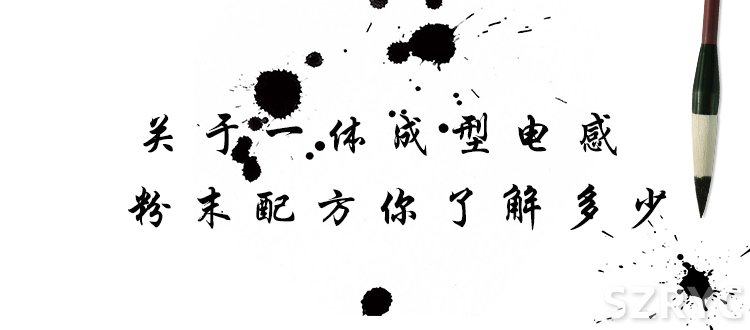 关于一体成型电感
粉末配方你了解多少
SZRYC